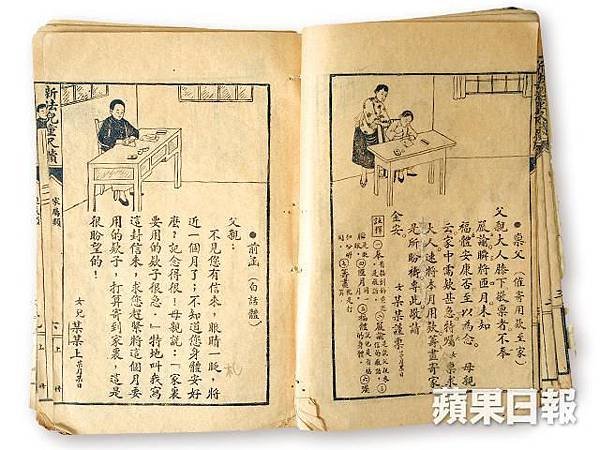 ●稟父（催寄用欵至家）
父親大人膝下敬稟者不奉
嚴諭瞬將匝月未知
福體安康否至以為念　母親
云家中需欵甚急特囑女稟求
大人速將本月用欵籌畫寄家
是所盼禱專此敬請
金安　女某某謹稟
註釋
●前函（白話體）
父親：
不見您有信來，眼睛一眨，將
近一個月了；不知道您身體安好
麼？記念得很！母親說：「家裏
要用的欵子很急。」特地叫我寫
這封信來，求您趕緊將這個月要
用的欵子，打算寄到家裏，這是
很盼望的！
女兒某某上　某月某日
新法兒童尺牘
家屬類
上冊
蘋果日報